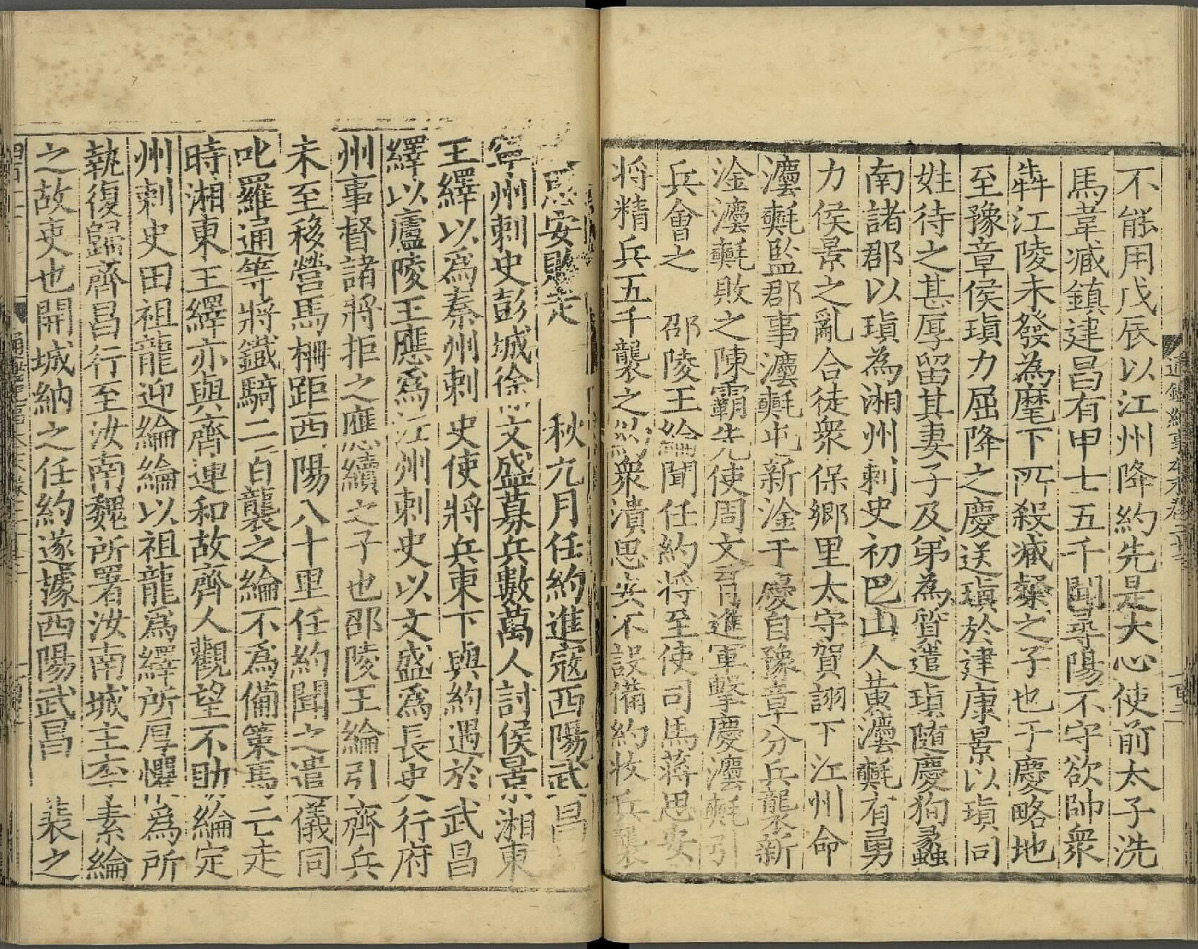 不能用戊辰以江州降約先是大心使前太子洗
馬韋臧鎮建昌有甲士五千聞尋陽不守欲帥衆
犇江陵未發為麾下所殺臧粲之子也于慶略地
至豫章侯瑱力屈降之慶送瑱於建康景以瑱同
姓待之甚厚留其妻子及弟為質遣瑱隨慶徇蠡
南諸郡以瑱為湘州刺史初巴山人黄灋𣰰有勇
力侯景之亂合徒衆保鄉里太守賀詡下江州命
灋𣰰監郡事灋𣰰屯新淦于慶自豫章分兵襲新
淦灋𣰰敗之陳霸先使周文育進軍擊慶灋𣰰引
兵會之 邵陵王綸聞任約將至使司馬蒋思安
将精兵五千襲之約衆潰思安不設備約收兵襲
思安敗走 秋九月任約進寇西陽武昌
寧州刺史彭城徐文盛募兵數萬人討侯景湘東
王繹以為秦州刺史使將兵東下與約遇於武昌
繹以廬陵王應為江州刺史以文盛為長史行府
州事督諸將拒之應續之子也邵陵王綸引齊兵
未至移營馬柵距西陽八十里任約聞之遣儀同
叱羅通等將鐵騎二百襲之綸不為備策馬亡走
時湘東王繹亦與齊連和故齊人觀望不助綸定
州刺史田祖龍迎綸綸以祖龍為繹所厚懼為所
執復歸齊昌行至汝南魏所署汝南城主李素綸
之故吏也開城納之任約遂據西陽武昌 裴之